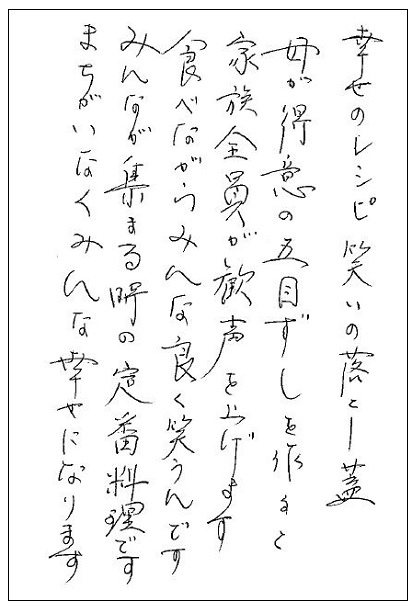 幸せのレシピ 笑いの落とし蓋
母が得意の五目ずしを作ると
家族全員が歓声を上げます
食べながらみんな良く笑うんです
みんなが集まる時の定番料理です
まちがいなくみんな幸せになります